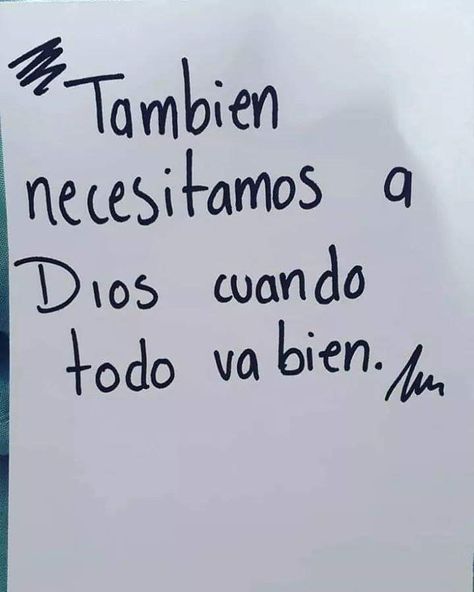 Tambien
necesitamos a
Dios cuando
todo va bien.